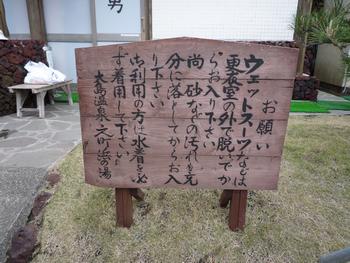 男
お願い
ウェットスーツなどは
更衣室の外で脱いでか
らお入り下さい
尚、砂などの汚れを充
分に落としてからお入
り下さい
御利用の方は水着を必
ず着用して下さい
大島温泉 元町浜の湯